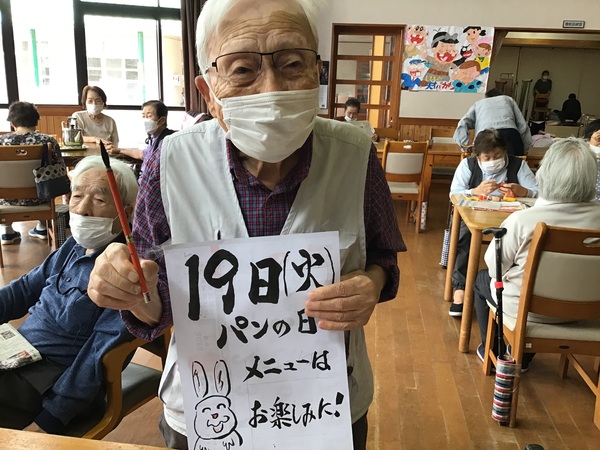 19日(火)
パンの日
メニューは
お楽しみに!